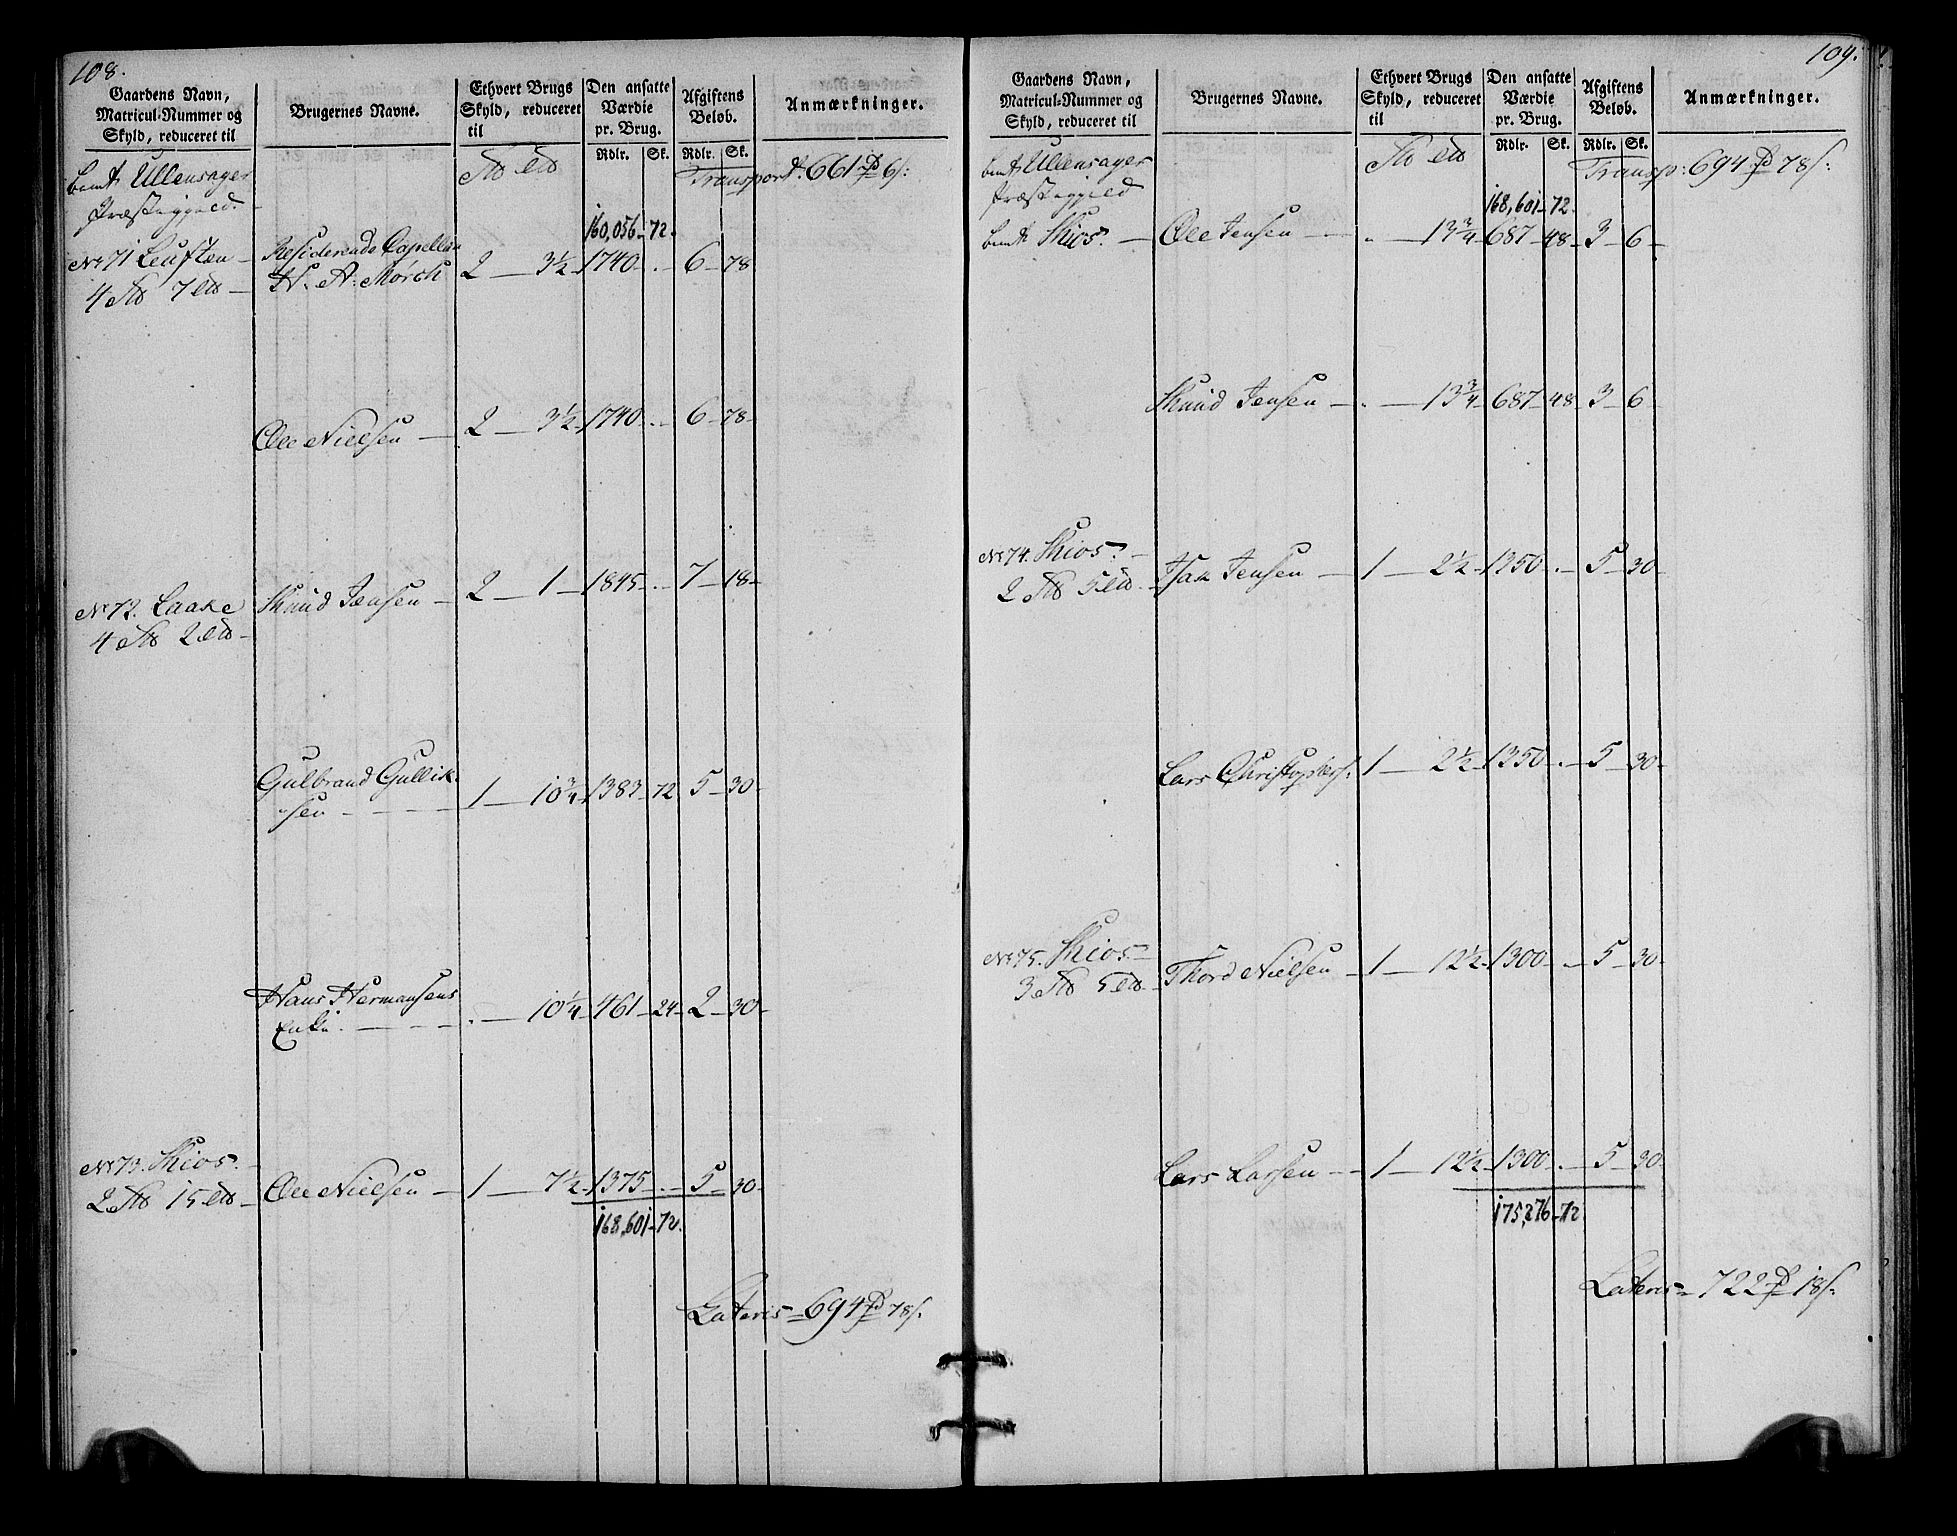 108.
Gaardens Navn, Matricul-Nummer og Skyld, reduceret til | Brugernes Navne. | Ethvert Brugs Skyld, reduceret til | Den ansatte Værdie pr. Brug. Rdlr. Sk. | Afgiftens Beløb. Rdlr. Sk. | Anmærkninger.
bemt Ullensager Transport. 661 6 s:
Præstegield.
160,056 - 72.
Nr 71 Leuften - Residerende Capellan
4 7 H. A: Mørch 2 - 3½ - 1740 - . - 6 - 78
Ole Nielsen - 2 - 3½ - 1740 - . - 6 - 78 -
Nr 72. Laake Knud Jensen - 2 - 1 - 1845 - . - 7 - 18 -
4 2
Gulbrand Gullik-
sen - 1 - 10¾ - 1383 - 72 5 - 30 -
Hans Hermansens
Enke. - . - 10¼ - 461 - 24 - 2 - 30 -
Nr 73. Skios. -
2 15 - Ole Nielsen - 1 - 7½ - 1375 - . - 5 - 30 -
168,601 - 72.
Lateris = 694 78 s.
109.
Gaardens Navn, Matricul-Nummer og Skyld, reduceret til | Brugernes Navne. | Ethvert Brugs Skyld, reduceret til | Den ansatte Værdie pr. Brug. Rdlr. Sk. | Afgiftens Beløb. Rdlr. Sk. | Anmærkninger.
bemt Ullensager Transp: 694 78 s:
Præstegield
168,601 - 72.
bemt Skios. - Ole Jensen - . - 13¾ - 687 - 48 - 3 - 6 -
Knud Jensen - . - 13¾ - 687 - 48 - 3 - 6 -
Nr 74. Skios. -
2 5 - Isak Jensen - 1 - 2½ - 1350 - . - 5 - 30 -
Lars Christophers. 1 - 2½ - 1350 - . - 5 - 30 -
Nr 75. Skios -
3 5 - Thord Nielsen - 1 - 12½ - 1300 - . - 5 - 30 -
Lars Larsen - - 1 - 12½ - 1300 - . - 5 - 30 -
175,276 - 72
Lateris = 722 18 s.